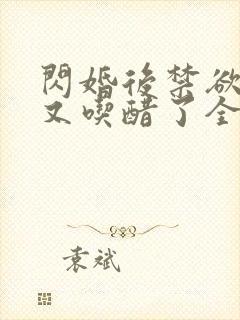 閃婚後禁欲
又喫醋了全
袁斌